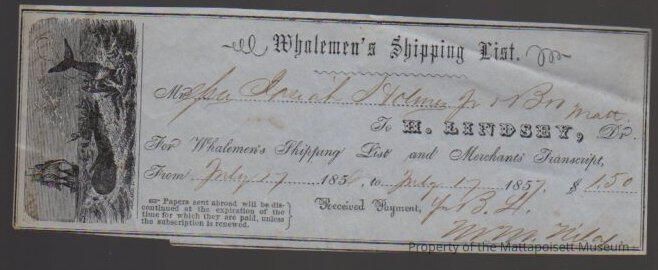 Whalemen's Shipping List.
Mr Josiah Holmes Jr & Bro Matt.
To H. LINDSEY, Dr.
For Whalemen's Shipping List and Merchants' Transcript,
From July 17 1856, to July 17 1857, $ 1.50
Papers sent abroad will be dis-
continued at the expiration of the
time for which they are paid, unless
the subscription is renewed.
Received Payment,
Property of the Mattapoisett Museum